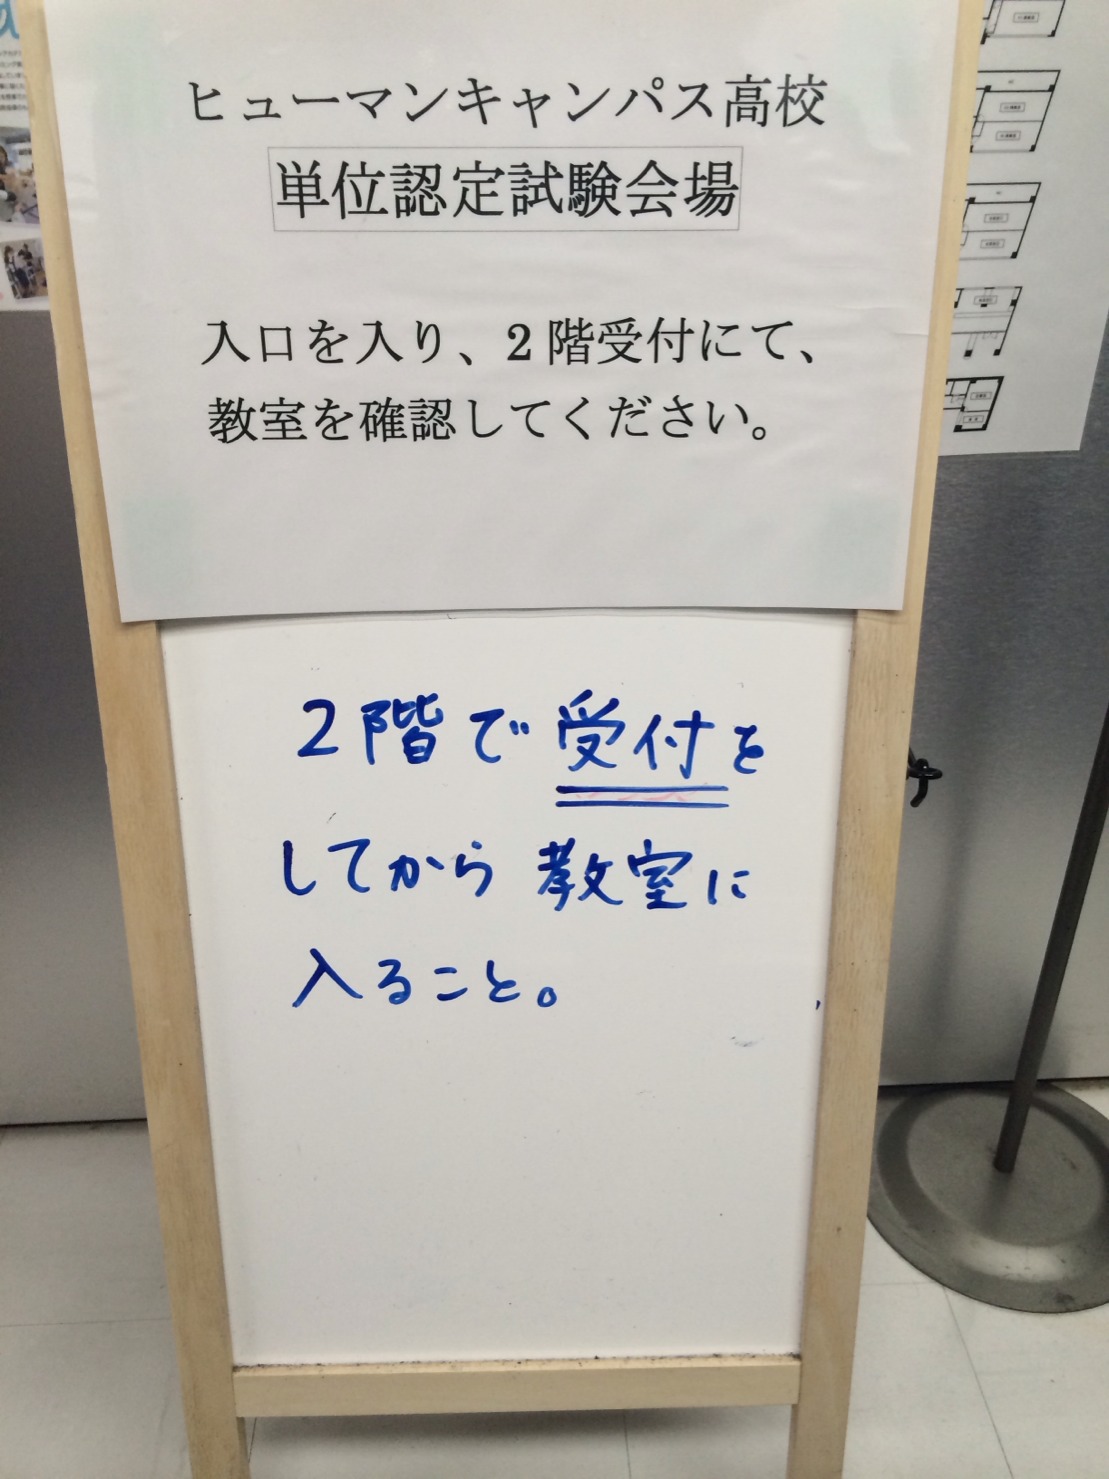 ヒューマンキャンパス高校
単位認定試験会場
入口を入り、2階受付にて、
教室を確認してください。
2階で受付を
してから教室に
入ること。